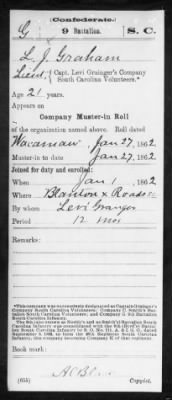 Confederate.
G 9 Battalion. S. C.
L. J. Graham
Lieut, Capt. Levi Grainger's Company
South Carolina Volunteers.*
Age 21 years.
Appears on
Company Muster-in Roll
of the organization named above. Roll dated
Wacamaw, Jan 27, 1862
Muster-in to date Jan 27, 1862
Joined for duty and enrolled:
When Jan 1, 1862
Where Blanton x Roads
By whom Levi Granger
Period 12 mos
Remarks:
*This company was subsequently designated as Captain Grainger's
Book mark:
(655) Copyist.